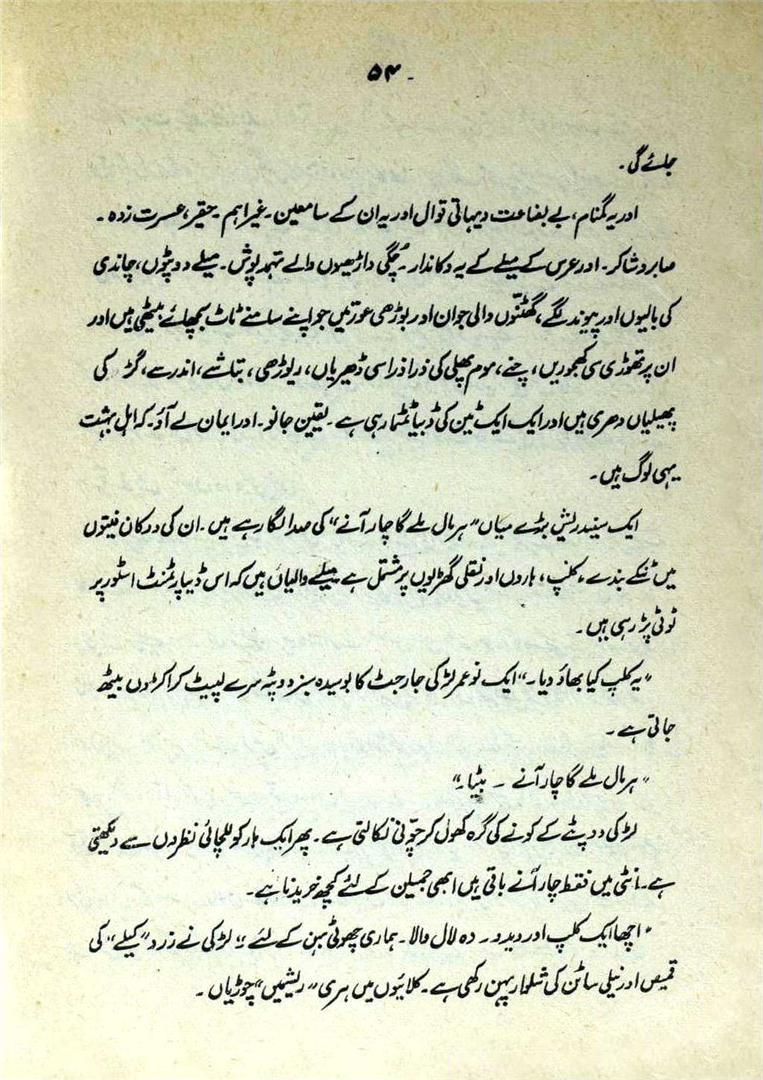 ۵۴
جائے گی۔
اور یہ گمنام، بے بضاعت دیہاتی قوال اور یہ ان کے سامعین۔ غیر اہم۔ حقیر، عسرت زدہ۔
صابر و شاکر۔ اور عرس کے میلے کے یہ دکاندار۔ چُگی داڑھیوں والے تہمد پوش۔ میلے دوپٹوں، چاندی
کی بالیوں اور پیوند لگے، گھٹنّوں والی جوان اور بوڑھی عورتیں جو اپنے سامنے ٹاٹ بچھائے بیٹھی ہیں اور
ان پر تھوڑی سی کھجوریں، چنے، موم پھلی کی ذرا ذرا سی ڈھیریاں، ریوڑھی، بتاشے، اندرسے، گڑ کی
پھیلیاں دھری ہیں اور ایک ایک ٹین کی ڈبیا ٹمٹما رہی ہے۔ یقین جانو۔ اور ایمان لے آؤ۔ کہ اہل بہشت
یہی لوگ ہیں۔
ایک سپید ریش بڑے میاں "ہر مال ملے گا چار آنے" کی صدا لگا رہے ہیں۔ ان کی دوکان فیتوں
میں ٹنکے بندے، کلپ، ہاروں اور نقلی گھڑیوں پر مشتمل ہے۔ میلے والیاں ہیں کہ اس ڈیپارٹمنٹ اسٹور پر
ٹوٹی پڑ رہی ہیں۔
"یہ کلپ کیا بھاؤ دیا۔" ایک نو عمر لڑکی جارجٹ کا بوسیدہ سبز دوپٹہ سر سے لپیٹ کر اکڑوں بیٹھ
جاتی ہے۔
"ہر مال ملے گا چار آنے ۔ بٹیا۔"
لڑکی دوپٹے کے کونے کی گرہ کھول کر چوّنی نکالتی ہے۔ پھر ایک ہار کو للچائی نظروں سے دیکھتی
ہے۔ انٹی میں فقط چار آنے باقی ہیں ابھی جمیلن کے لئے کچھ خریدنا ہے۔
"اچھا ایک کلپ اور دیدو۔ وہ لال والا۔ ہماری چھوٹی بہن کے لئے۔" لڑکی نے زرد "کیلے" کی
قمیص اور نیلی ساٹن کی شلوار پہن رکھی ہے۔ کلائیوں میں ہری "ریشمیں" چوڑیاں۔